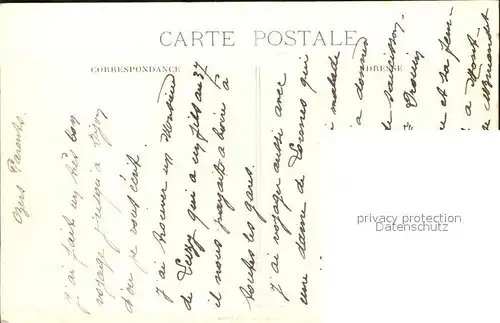 CARTE POSTALE
CORRESPONDANCE
ADRESSE
Chers Parents
J'ai fait un très bon
voyage jusqu'à Lyon
d'où je vous écris.
J'ai trouver un Monsieur
de qui a un fils au 37
il nous payait a boire à
toutes les gares.
J'ai voyager aussi avec
une dame de qui
malade
a donné
de
et sa fem-
à Mont-
privacy protection
Datenschutz